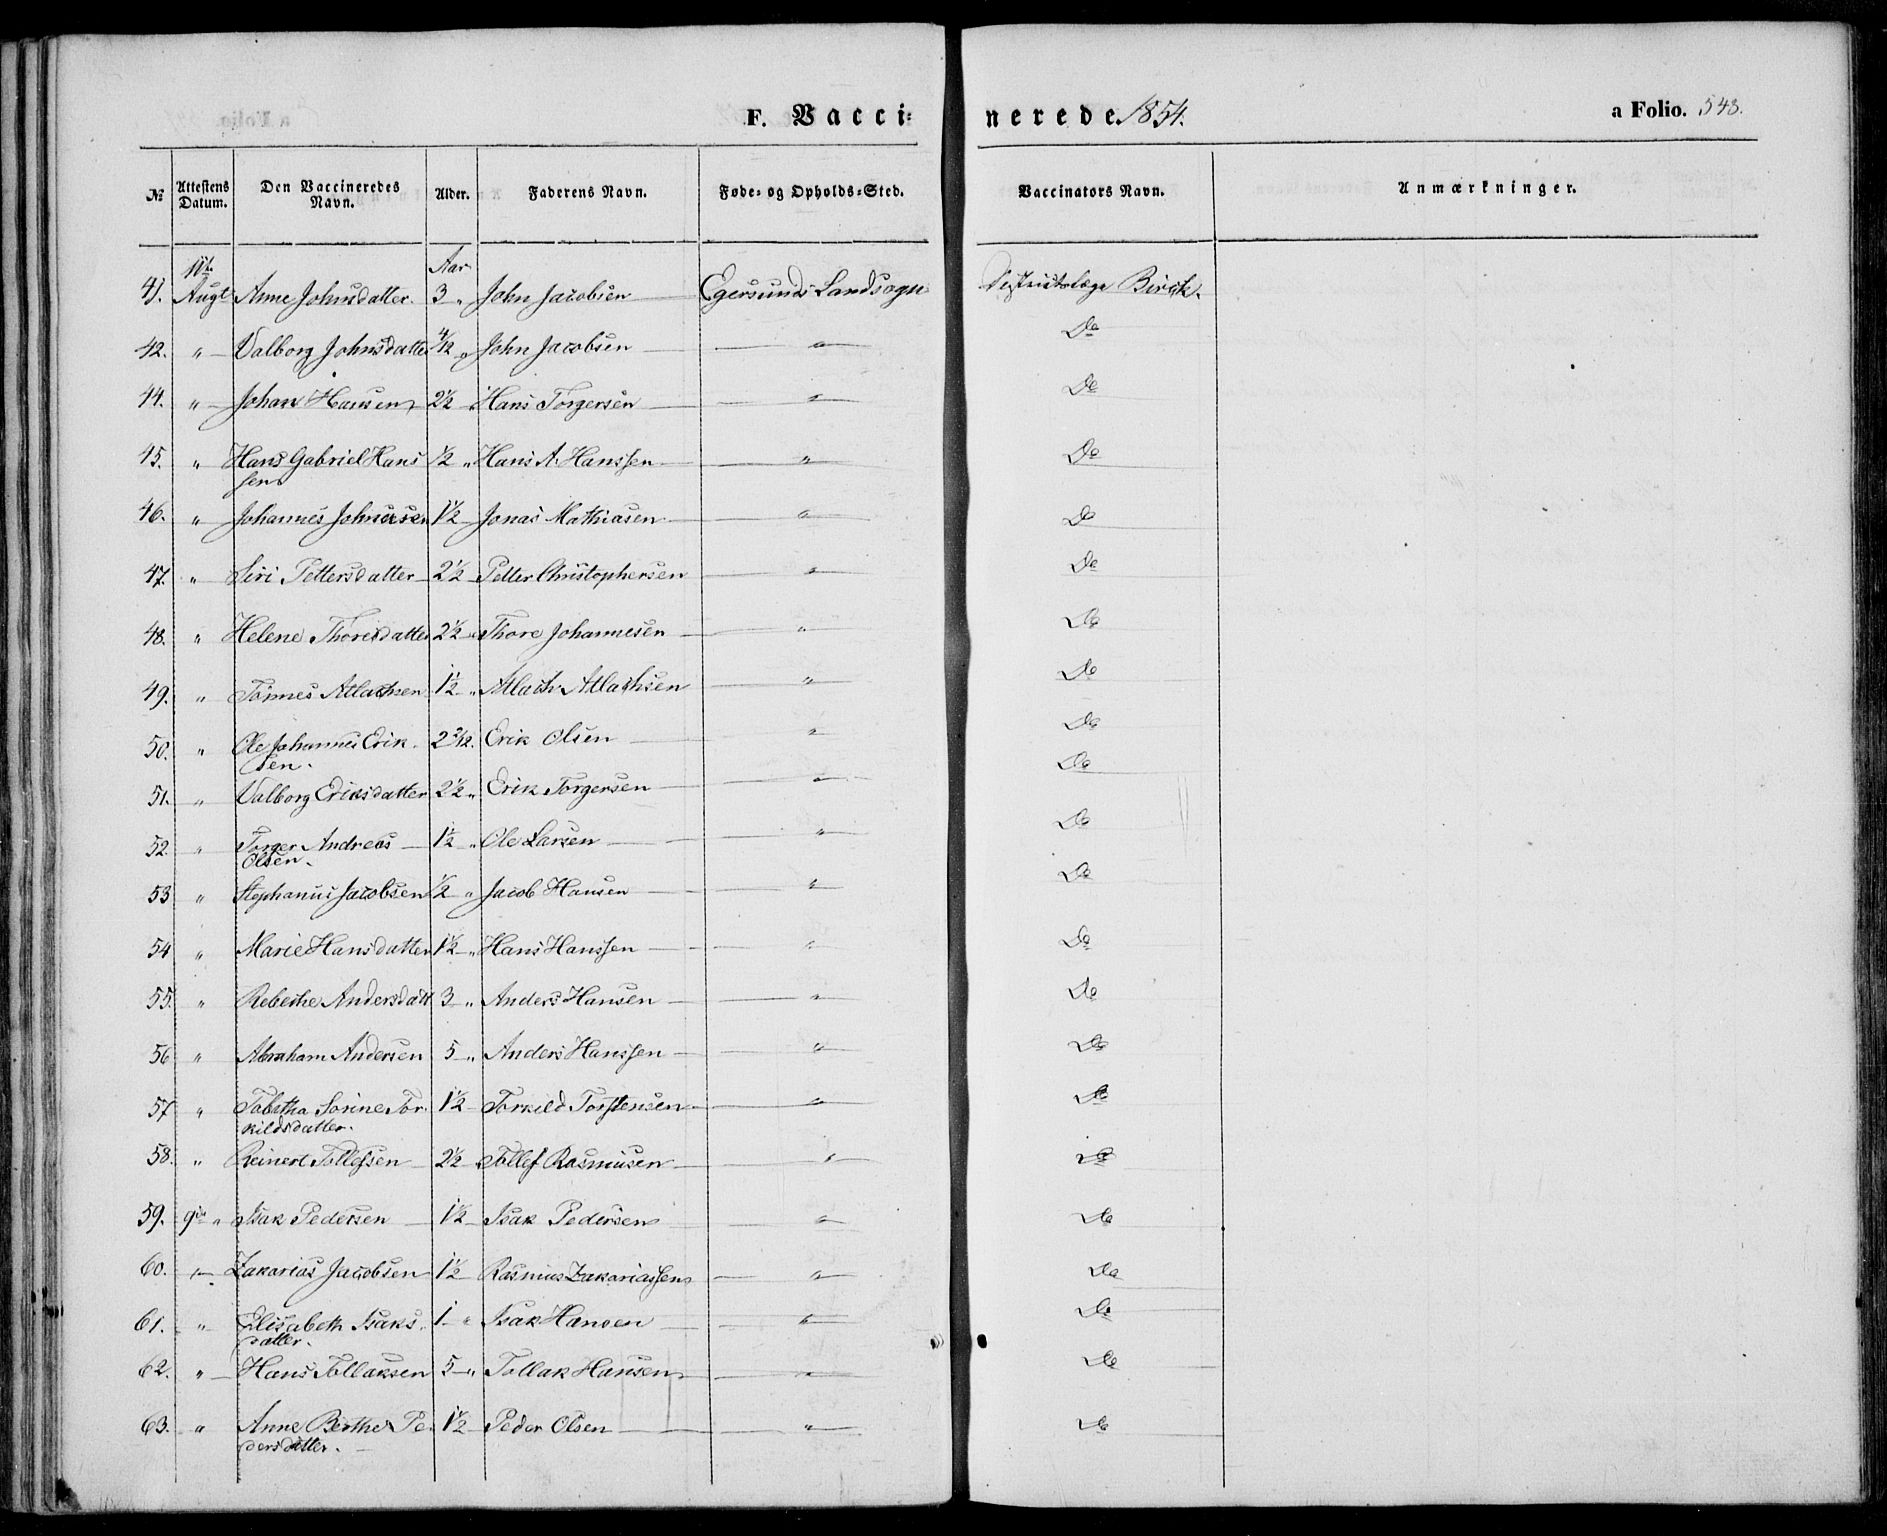 F. Vacci=
nerede 1854.
a Folio. 543.
No Attestens Datum. Den Vaccineredes Navn. Alder. Faderens Navn. Føde- og Opholds-Sted. Vaccinators Navn. Anmærkninger.
11te Aar
41. Augt Anne Johnsdatter 3 " John Jacobsen Egersunds Landsogn Districtslæge Birck.
42. " Valborg Johnsdatter 4/12 " John Jacobsen " Do
44. " Johan Hansen 2½ Hans Torgersen " Do
45. " Hans Gabriel Hans ½ " Hans A. Hanssen " Do
sen
46. " Johannes 1½ Jonas Mathiasen " Do
47. " Siri Pettersdatter 2½ Petter Christophersen " Do
48. " Helene Thoresdatter 2½ " Thore Johannesen " Do
49. " Tönnes Atlachsen 1½ " Atlach Atlachsen " Do
50. " Ole Johannes Erik 2 2/12. Erik Olsen " Do
sen.
51. " Valborg Eriksdatter 2½ " Erik Torgersen " Do
52. " Torger Andreas 1½ " Ole Larsen " Do
Olsen.
53 " Stephanus Jacobsen ½ " Jacob Hansen " Do
54 " Marie Hansdatter 1½ " Hans Hanssen " Do
55. " Rebecke Andersdatt 3 " Anders Hansen " Do
56 " Abraham Andersen 5 " Anders Hanssen " Do
57 " Tabitha Sorine Tor 1½ Torkild Torstensen " Do
kildsdatter.
58. " Reinert Tollefsen 2½ Tollef Rasmusen " Do
59. 9de " Isak Pedersen 1½ Isak Pedersen " Do
60. " Zakarias Jacobsen 1½ Rasmus Zakariassen " Do
61. " Elisabeth Isaks 1 " Isak Hansen " Do
datter.
62. " Hans Tollaksen 5 " Tollak Hansen " Do
63. " Anne Berthe Pe 1½ Peder Olsen " Do
dersdatter.